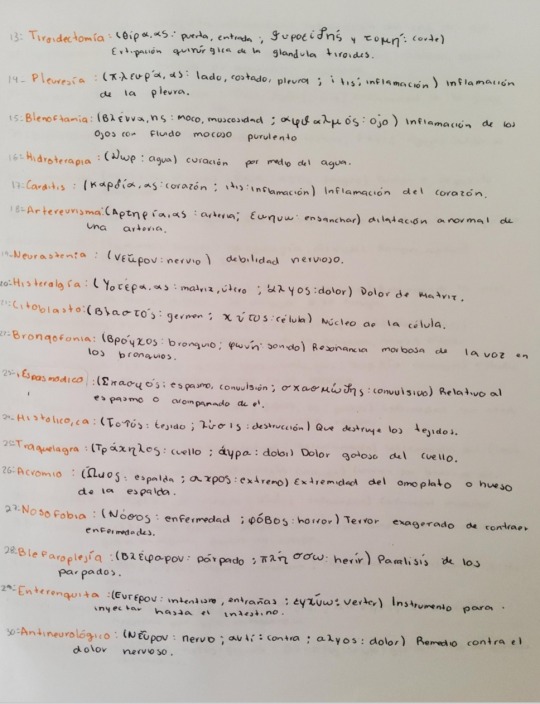 13: Tiroidectomía: (θύρα,ας: puerta, entrada; θυροειδής y τομή: corte)
Extipación quirúrgica de la glandula tiroides.
14- Pleuresía: (πλευρά, ας: lado, costado, pleura; itis; inflamación) Inflamación
de la pleura.
15-Blenoftamia: (βλέννα,ης: moco, muscosidad; οφθαλμός: ojo) Inflamación de los
ojos con fluido mocoso purulento
16-Hidroterapia: (Υδωρ: agua) curación por medio del agua.
17-Carditis: (καρδία,ας: corazón; itis: inflamación) Inflamación del corazón.
18-Artereurisma: (Αρτηρία,ας: arteria; ensanchar) dilatación anormal de
una arteria.
19-Neurastenia: (νεύρον: nervio) debilidad nervioso.
20-Histeralgía: (Υστέρα,ας: matriz, útero; άλγος: dolor) Dolor de Matriz.
21-Citoblasto: (Βλαστός: germen; κύτος: célula) Núcleo de la célula.
22-Brongofonía: (Βρόγχος: bronquio; φωνή: sonido) Resonancia morbosa de la voz en
los bronquios.
23-Espasmódico: (Σπασμός: espasmo, convulsión; σπασμώδης: convulsivo) Relativo al
espasmo o acompañado de el.
24-Histolico,ca: (Ιστός: tejido; λύσις: destrucción) Que destruye los tejidos.
25-Traquelagra: (Τράχηλος: cuello; άγρα: dolor) Dolor gotoso del cuello.
26-Acromio: (Ωμος: espalda; ακρος: extremo) Extremidad del omoplato o hueso
de la espalda.
27-Nosofobia: (Νόσος: enfermedad; φόβος: horror) Terror exagerado de contraer
enfermedades.
28-Blefaroplejía: (Βλέφαρον: párpado; πλήσσω: herir) Paralisis de los
párpados.
29-Enterenquita: (Εντερον: intestino, entrañas; εγχύω: verter) Instrumento para
inyectar hasta el intestino.
30-Antineurológico: (Νεύρον: nervo; αντί: contra; αλγος: dolor) Remedio contra el
dolor nervioso.